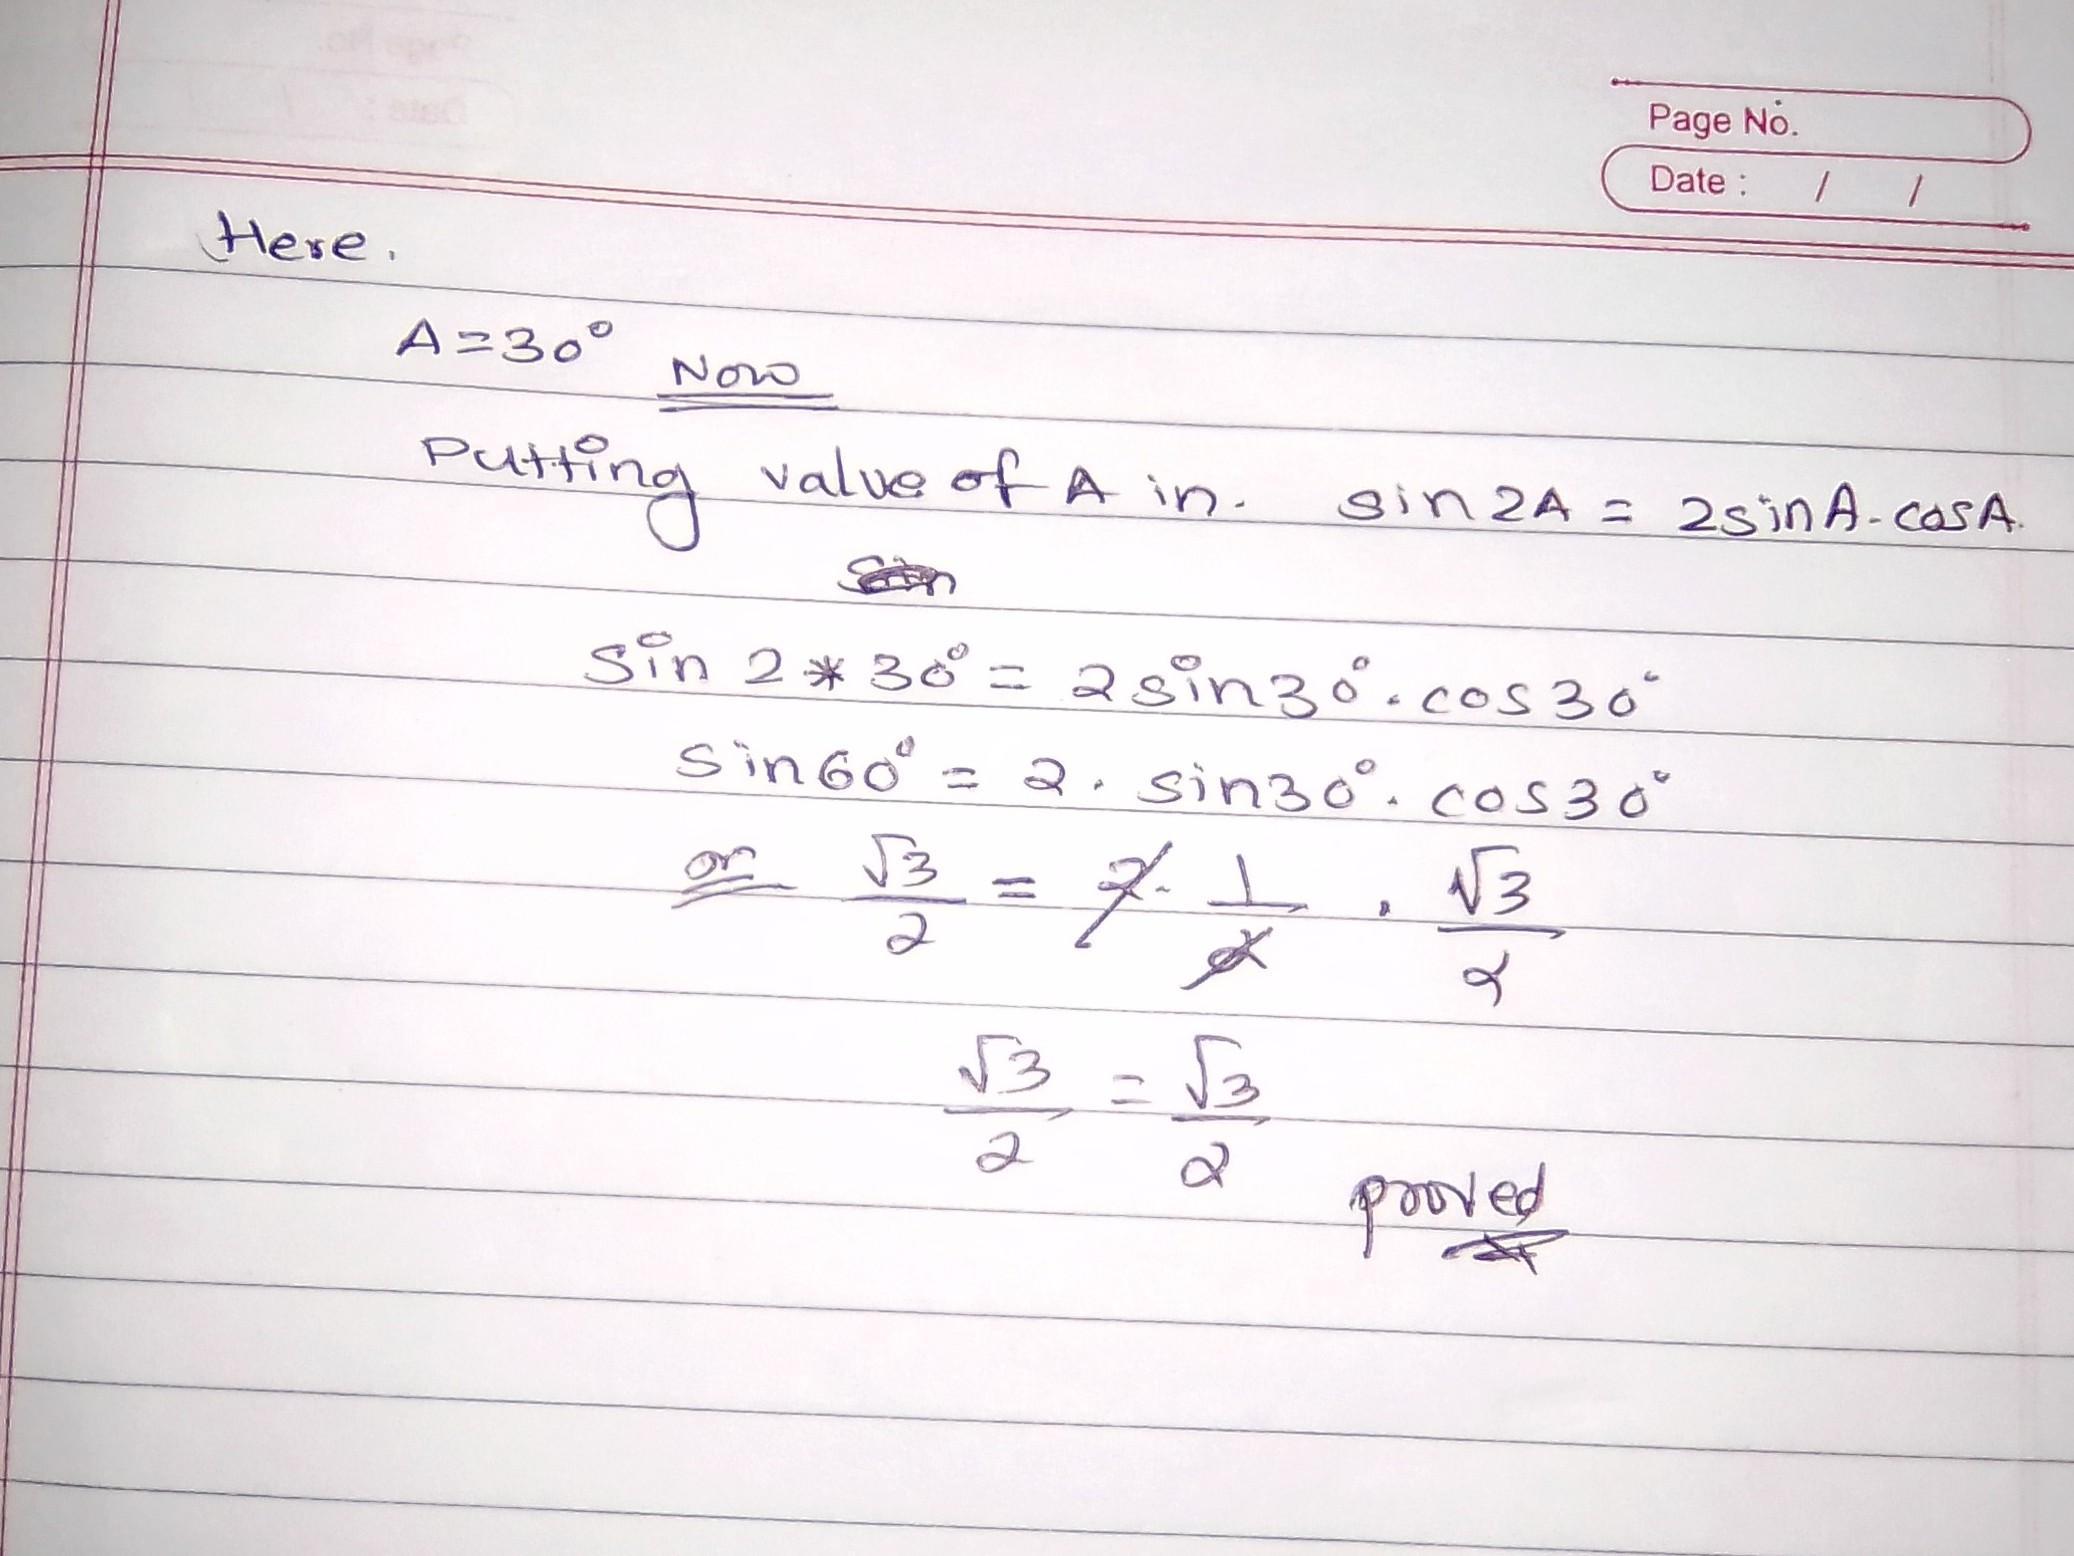 Page No.
Date : / /
Here.
A=30°
Now
Putting value of A in. sin2A = 2sinA.cosA.
sin 2*30° = 2sin30°.cos30°
sin60° = 2.sin30°.cos30°
or √3/2 = 2.1/2.√3/2
√3/2 = √3/2
proved